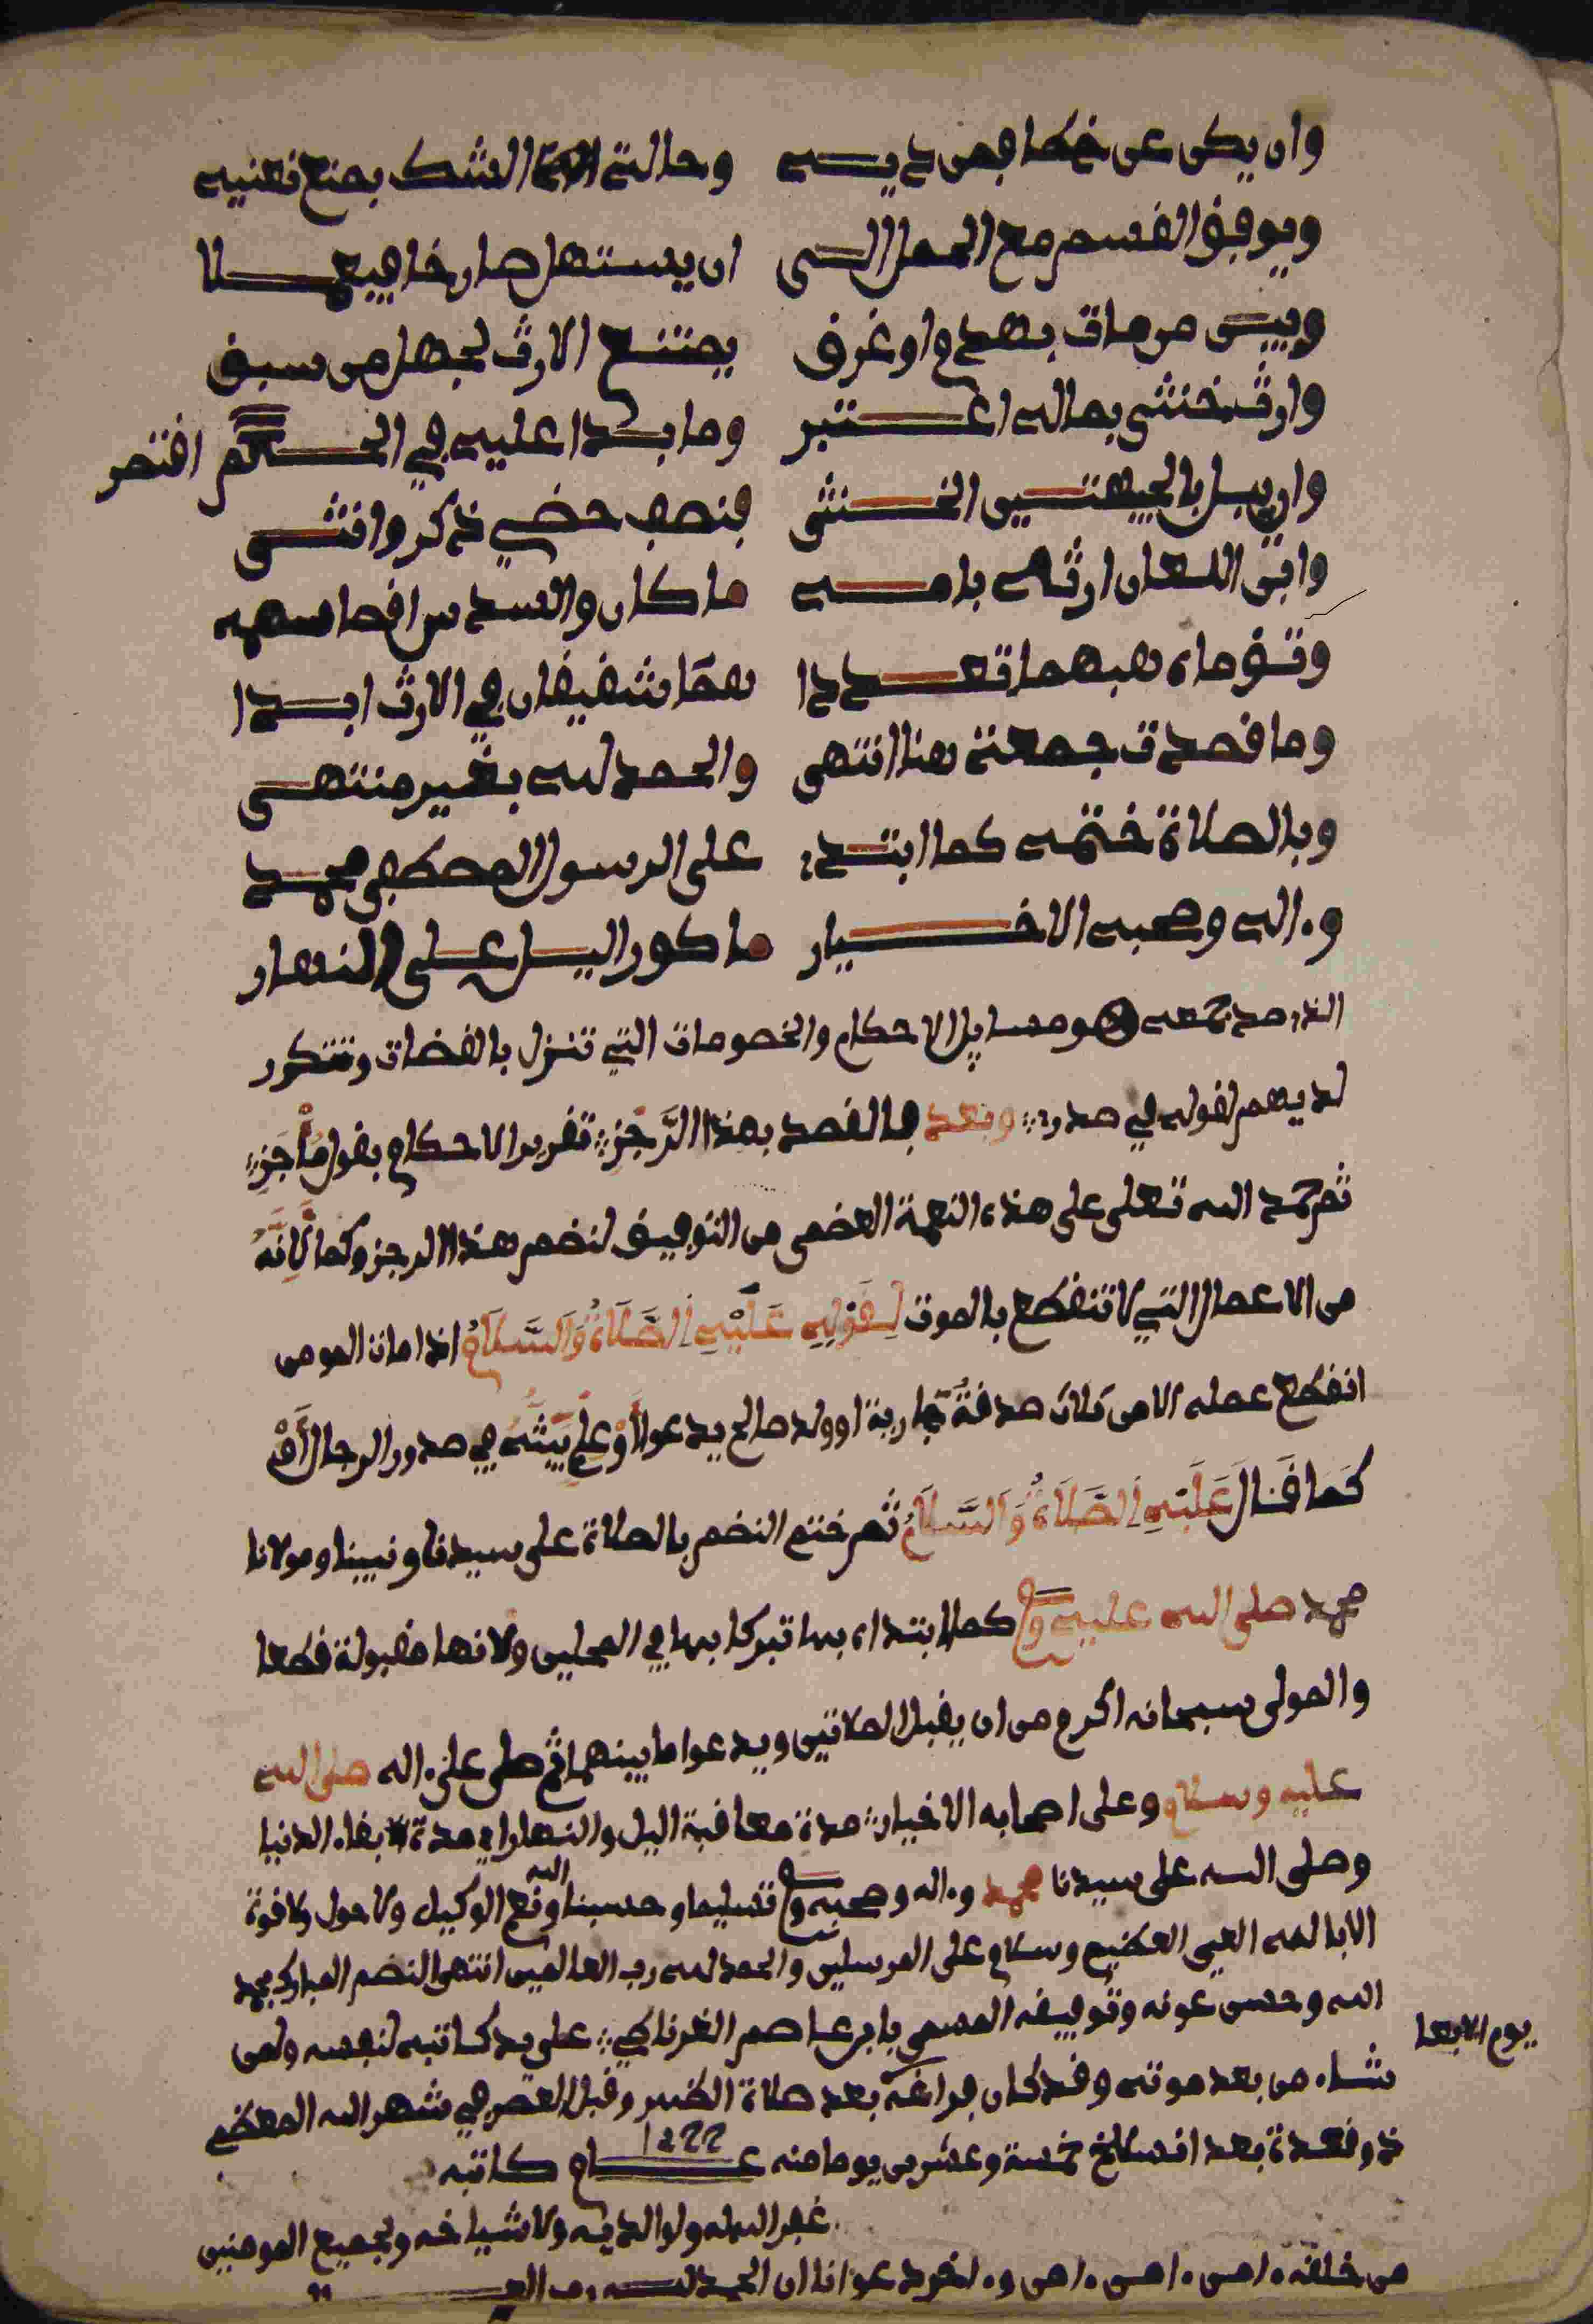 وان يكن عن خطا فمن ديه وحالة الشك بمنع مغنيه
ويوقف القسم مع الحمل الى ان يستهل صارخا فيعملا
وبين من مات بهدم او غرق يمتنع الارث لجهل من سبق
وارث خنثى بماله اعتبر وما بدا عليه في الحكم اقتصر
وان يبل بالجهتين الخنثى فنصف حظي ذكر وانثى
وابن اللعان ارثه بامه ما كان والسدس اقصا سهمه
وتوماه هبهما تعددا هما شقيقان في الارث ابدا
وما قصدت جمعه هنا انتهى والحمد لله بغير منتهى
وبالصلاة ختمه كما ابتدء على الرسول المصطفى محمد
وءاله وصحبه الاخيار ما كور اليل على النهار
الذي جمعه هو مسايل الاحكام والخصومات التي تنزل بالقضات وتتكرر
لديهم لقوله في صدره وبعد فالقصد بهذا الرَّجَزِ تقرير الاحكام بقول مُأْجَزِ
ثم حمد الله تعلى على هذه النعمة العضمى من التوفيق لنضم هذا الرجز وكماله لِانَّهُ
من الاعمال التي لا تنقطع بالموت لِقَوْلِهِ عَلَيْهِ الصَّلَاةُ وَالسَّلَامُ اذا مات المومن
انقطع عمله الا من ثلاث صدقةٌ جارية او ولد صالح يدعوا له أَوْ عِلْمٍ يَبُثُّهُ في صدور الرجال أَوْ
كَمَا قَالَ عَلَيْهِ الصَّلَاةُ وَالسَّلَامُ ثم ختم النضم بالصلاة على سيدنا ونبينا ومولانا
محمد صلى الله عليه وسلم كما ابتداه بها تبركا بها في المحلين ولانها مقبولة قطعا
والمولى سبحانه اكرم من ان يقبل الصلاتين ويدعوا ما بينهما ثم صلى على ءاله صلى الله
عليه وسلم وعلى اصحابه الاخيار مدة معاقبة اليل والنهار اي مدة بقاء الدنيا
وصلى الله على سيدنا محمد وءاله وصحبه وسلم تسليما وحسبنا الله ونعم الوكيل ولا حول ولا قوة
الا بالله العلي العظيم وسلام على المرسلين والحمد لله رب العالمين انتهى النضم المبارك بحمد
الله وحسن عونه وتوفيقه المسمى بابن عاصم الغرناطي على يد كاتبه لنفسه ولمن
يوم الاربعا
شاء من بعد موته وقد كان فراغه بعد صلاة الظهر وقبل العصر في شهر الله المعظم
ذو قعدة بعد انسلاخ خمسة وعشرين يوما منه عام 1277 كاتبه
غفر الله له ولوالديه ولاشياخه ولجميع المومنين
من خلقه ءامين ءامين ءامين وءاخر دعوانا ان الحمد لله رب